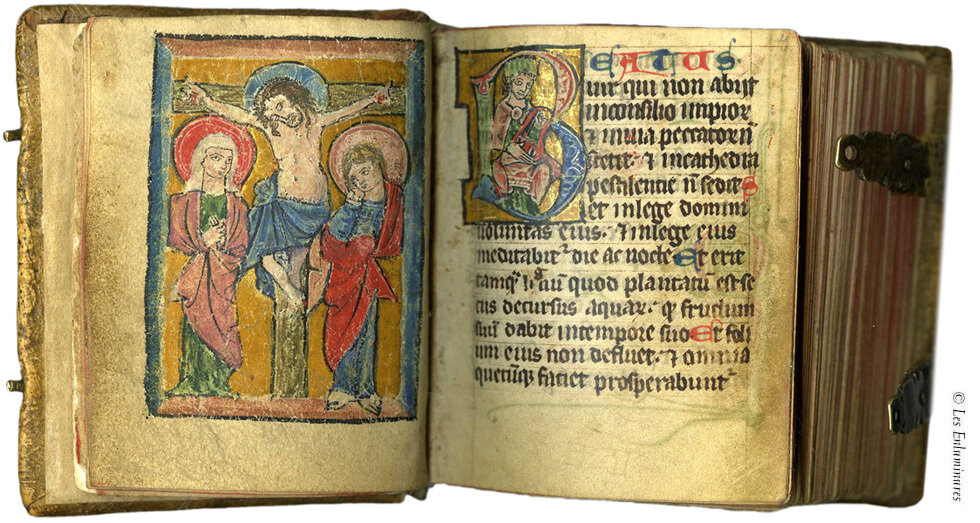 BEATUS
uir qui non abijt
in consilio impior
& in uia peccatorū
stetit. & in cathedra
pestilentie ñ sedit
et in lege domini
uoluntas eius. & in lege eius
meditabit᷑ die ac nocte Et erit
tamq̄ lignū quod plantatū est se
cus decursus aquar. q̄ fructum
suū dabit in tempore suo Et foli
um eius non defluet. & omnia
quecūq̨ faciet prosperabunt᷑
© Les Enluminures